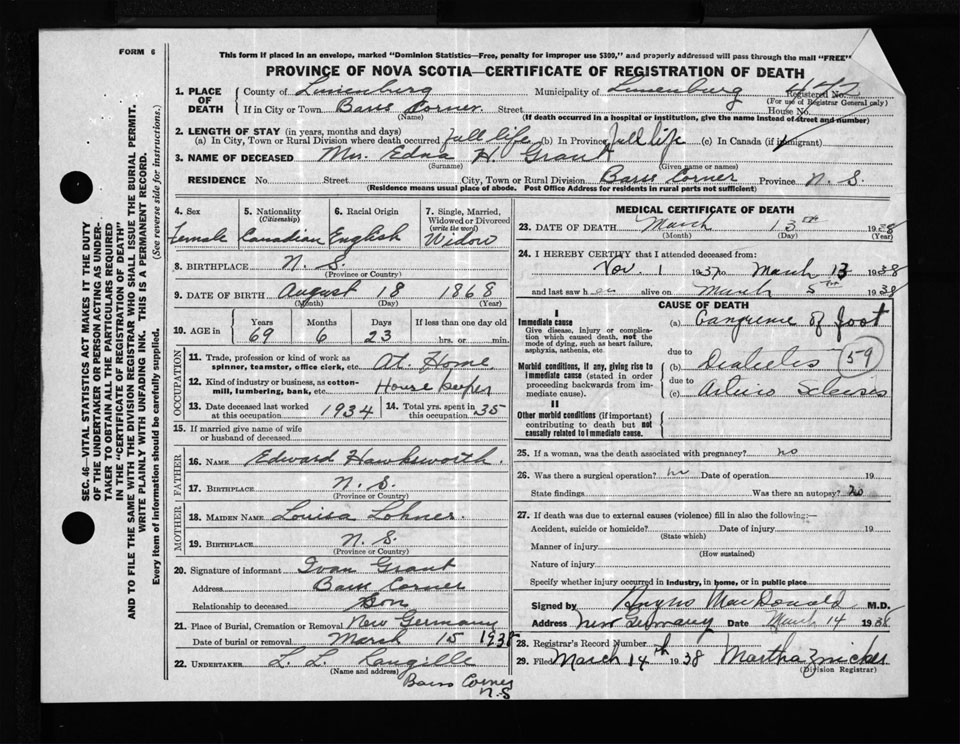 FORM 6
This form if placed in an envelope, marked "Dominion Statistics—Free, penalty for improper use $300," and properly addressed will pass through the mail "FREE"
PROVINCE OF NOVA SCOTIA—CERTIFICATE OF REGISTRATION OF DEATH
SEC. 46—VITAL STATISTICS ACT MAKES IT THE DUTY
OF THE UNDERTAKER OR PERSON ACTING AS UNDER-
TAKER TO OBTAIN ALL THE PARTICULARS REQUIRED
IN THE "CERTIFICATE OF DEATH"
AND TO FILE THE SAME WITH THE DIVISION REGISTRAR WHO SHALL ISSUE THE BURIAL PERMIT.
WRITE PLAINLY WITH UNFADING INK. THIS IS A PERMANENT RECORD.
Every item of information should be carefully supplied. (See reverse side for instructions.)
1. PLACE OF DEATH
County of Lunenburg Municipality of Lunenburg Registered No.
(For use of Registrar General only)
If in City or Town Barss Corner. Street House No.
(Name) (If death occurred in a hospital or institution, give the name instead of street and number)
2. LENGTH OF STAY (in years, months and days)
(a) In City, Town or Rural Division where death occurred full life (b) In Province full life (c) In Canada (if immigrant)
3. NAME OF DECEASED Mrs. Edna H Grant
(Surname) (Given name or names)
RESIDENCE No. Street City, Town or Rural Division Barss Corner Province N. S.
(Residence means usual place of abode. Post Office Address for residents in rural parts not sufficient)
4. Sex 5. Nationality (Citizenship) 6. Racial Origin 7. Single, Married, Widowed or Divorced (write the word)
Female Canadian English Widow
8. BIRTHPLACE N. S.
(Province or Country)
9. DATE OF BIRTH August 18 1868
(Month) (Day) (Year)
10. AGE in Years Months Days If less than one day old
69 6 23 hrs. or min.
OCCUPATION
11. Trade, profession or kind of work as spinner, teamster, office clerk, etc. At Home.
12. Kind of industry or business, as cotton-mill, lumbering, bank, etc. House keeper
13. Date deceased last worked at this occupation 1934 14. Total yrs. spent in this occupation 35
15. If married give name of wife or husband of deceased
FATHER
16. NAME Edward Hawksworth.
17. BIRTHPLACE N. S.
(Province or Country)
MOTHER
18. MAIDEN NAME Louisa Lohnes.
19. BIRTHPLACE N. S.
(Province or Country)
20. Signature of informant Ivan Grant
Address Barss Corner
Relationship to deceased Son
21. Place of Burial, Cremation or Removal New Germany
Date of burial or removal March 15 1938
22. UNDERTAKER L. L. Langille
(Name and address)
Barss Corner
N.S
MEDICAL CERTIFICATE OF DEATH
23. DATE OF DEATH March 13th 1938
(Month) (Day) (Year)
24. I HEREBY CERTIFY that I attended deceased from:
Nov. 1 1937 to March 13 1938
and last saw her alive on March 5th 1938
CAUSE OF DEATH
I
Immediate cause
Give disease, injury or complication which caused death, not the mode of dying, such as heart failure, asphyxia, asthenia, etc.
(a) Gangrene of foot
due to
Morbid conditions, if any, giving rise to immediate cause (stated in order proceeding backwards from immediate cause).
(b) Diabetes 59
due to
(c) Arterio Sclerosis
II
Other morbid conditions (if important) contributing to death but not causally related to immediate cause.
25. If a woman, was the death associated with pregnancy? no
26. Was there a surgical operation? no Date of operation 19
State findings Was there an autopsy? no
27. If death was due to external causes (violence) fill in also the following:—
Accident, suicide or homicide? Date of injury 19
(State which)
Manner of injury
(How sustained)
Nature of injury
Specify whether injury occurred in industry, in home, or in public place
Signed by Angus MacDonald M.D.
Address New Germany Date March 14 1938
28. Registrar's Record Number
29. Filed March 14th 1938 Martha Zinicker
(Division Registrar)